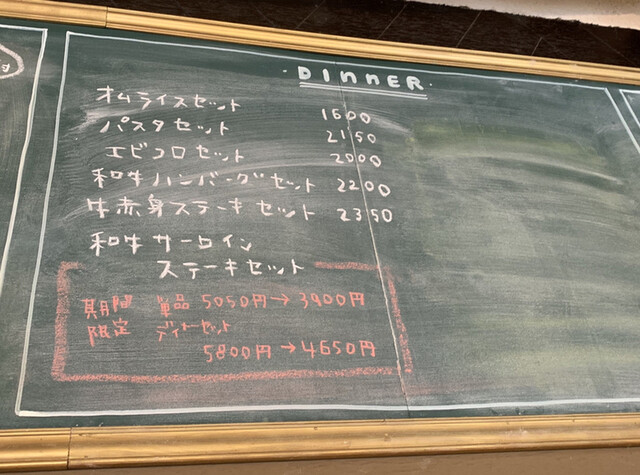 DINNER
オムライスセット 1600
パスタセット 2150
エビコロセット 2000
和牛ハンバーグセット 2200
牛赤身ステーキセット 2350
和牛サーロイン
ステーキセット
期間 単品 5050円→3900円
限定 ディナーセット
5800円→4650円